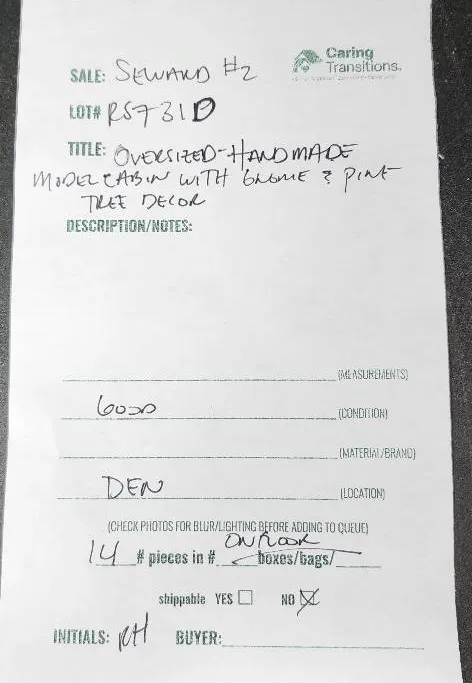 Caring
Transitions.
SALE: SEWARD #2
LOT# RS731D
TITLE: OVERSIZED-HANDMADE
MODEL CABIN WITH GNOME & PINE
TREE DECOR
DESCRIPTION/NOTES:
(MEASUREMENTS)
GOOD (CONDITION)
(MATERIAL/BRAND)
DEN (LOCATION)
(CHECK PHOTOS FOR BLUR/LIGHTING BEFORE ADDING TO QUEUE)
ON FLOOR
14 # pieces in # boxes/bags/
shippable YES ☐ NO ☒
INITIALS: RH BUYER: